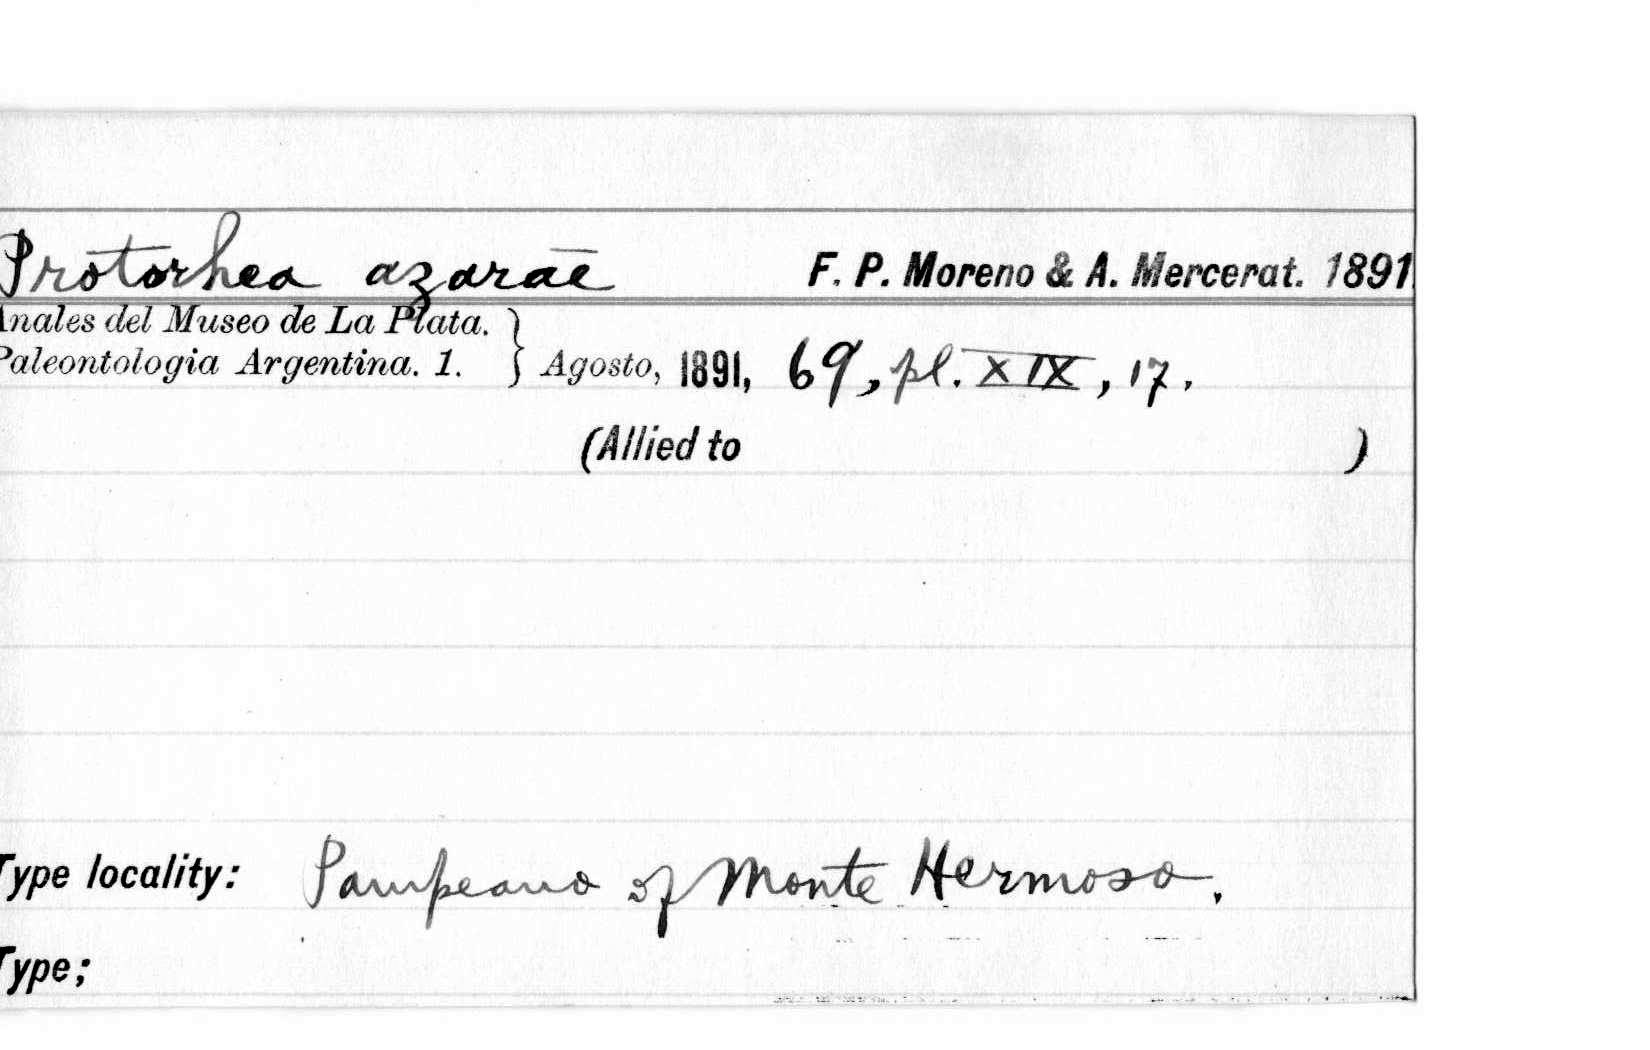 Protorhea azarae F. P. Moreno & A. Mercerat. 1891.
Anales del Museo de La Plata.
Paleontologia Argentina. 1. } Agosto, 1891, 69, pl. XIX, 17.
(Allied to )
Type locality: Pampeano of Monte Hermoso.
Type;